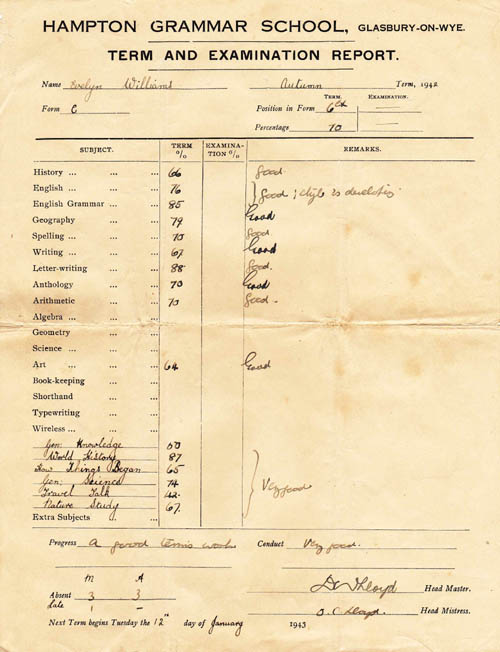 HAMPTON GRAMMAR SCHOOL, GLASBURY-ON-WYE.
TERM AND EXAMINATION REPORT.
Name Evelyn Williams Autumn Term, 1942
TERM. EXAMINATION.
Form C Position in Form 6th
Percentage 70
SUBJECT. TERM % EXAMINATION % REMARKS.
History ... 66 Good.
English ... 76 Good ; style is developing.
English Grammar ... 85
Geography ... 79 Good
Spelling ... 70 Good
Writing ... 67 Good
Letter-writing ... 88 Good.
Anthology ... 70 Good
Arithmetic ... 70 Good.
Algebra ...
Geometry ...
Science ...
Art ... 64 Good
Book-keeping ...
Shorthand ...
Typewriting ...
Wireless ...
Gen. Knowledge 50
World History 87
How Things Began 65
Gen. Science 74
Travel Talk 42. Very good
Nature Study 67.
Extra Subjects
Progress A good term's work Conduct Very good.
M A
Absent 3 3 Lloyd Head Master.
Late 1 – Lloyd. Head Mistress.
Next Term begins Tuesday the 12th day of January 1943